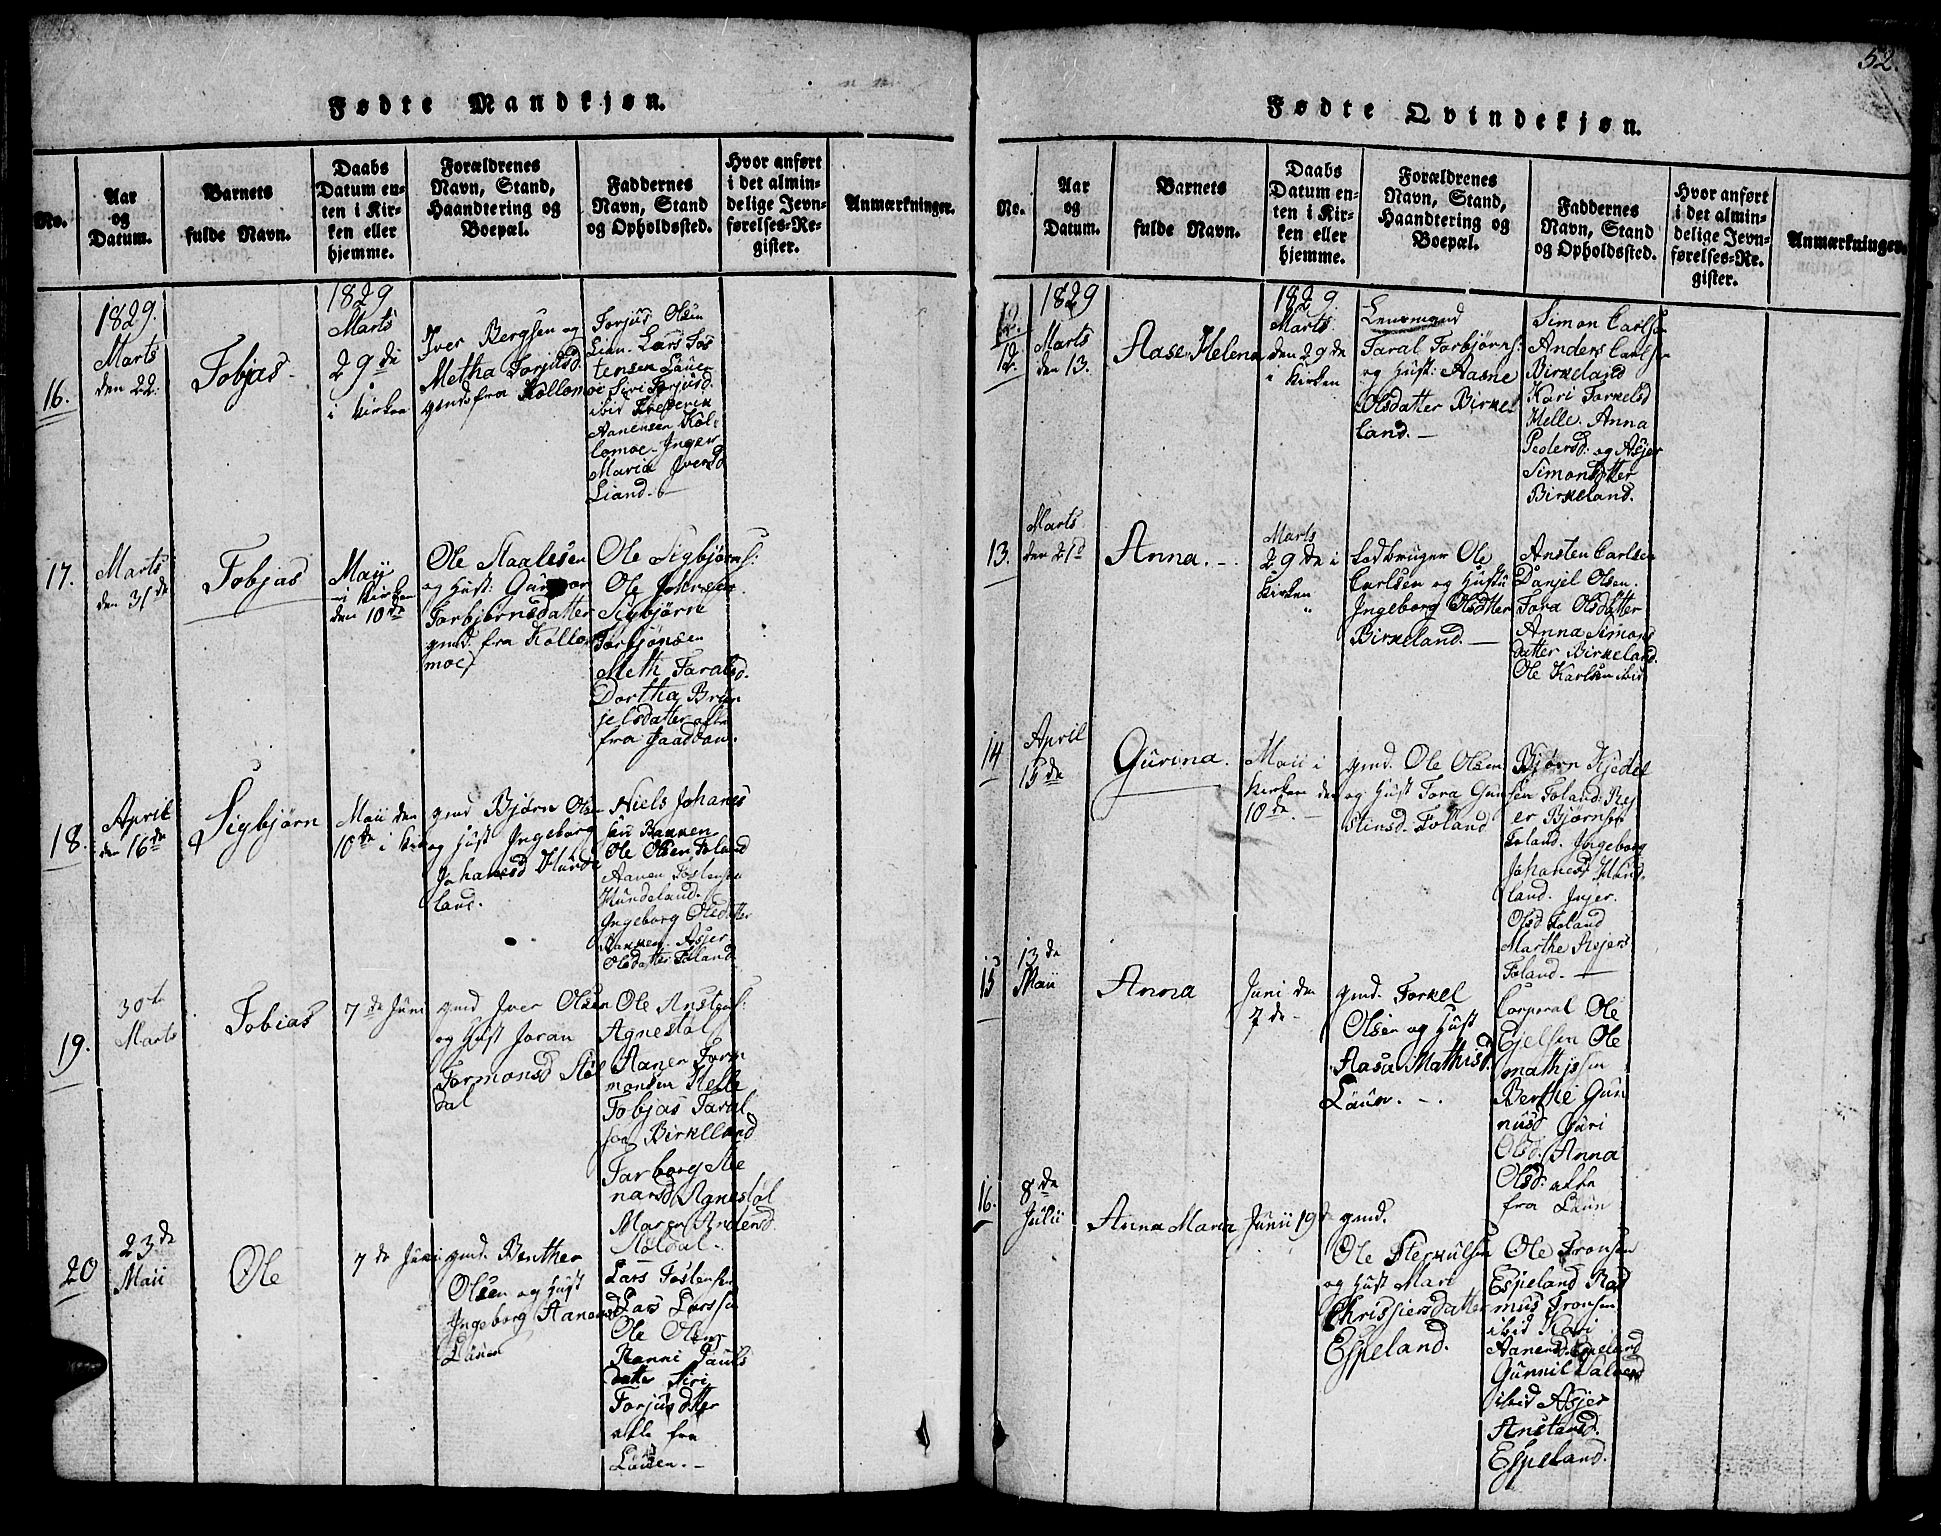 Fødte Mandkjøn.
No.
Aar
og
Datum.
Barnets
fulde Navn.
Daabs
Datum en-
ten i Kir-
ken eller
hjemme.
Forældrenes
Navn, Stand,
Haandtering og
Boepæl.
Faddernes
Navn, Stand
og Opholdssted.
Hvor anført
i det almin-
delige Jevn-
førelses-Re-
gister.
Anmærkninger.
16.
1829.
Marts
den 22.
Tobjas
1829
Marts
29de
i kirken
Iver Bergsen og
Metha Torjusd.
gmds fra Kollemoe
Torjus Olsen
Lien. Lars Tos
tensen Lauen
Siri Torjusd.
ibid Frederik
Aanensen Kol-
lomoe. Inger
Maria Iversd
Liand.
17.
Marts
den 31de
Tobjas
Maij
i kirken
den 10de
Ole Staalesen
og Hust: Gunvor
Torbjørnsdatter
gmd. fra Kollo
moe
Ole Sigbjørns:
Ole Johnsen
Sigbjørn
Torbjønsen
Meth Taralsd.
Dortha Bryn
jelsdatter alle
fra
18.
April
den 16de
Sigbjørn
Maii den
10de i kirk
gmd Bjørn Olsen
og Hust Ingeborg
Johanesd Hunde
land.
Niels Johanes
sen Bakken
Ole Olsen Foland
Aanen Tostensen
Hundeland.
Ingeborg Olsdatter
Bakken. Asjer
Olsdatter Foland
19.
30te
Marts
Tobias
7de Juni
gmd Iver Olsen
og Hust Joran
Tormonsd Støl
dal
Ole Anstens:
Agnestøl
Aanen Torm
monsen Helle
Tobjas Taral
sen Birkeland
Tarborg Ste
narsd Agnestøl
Maren Andersd.
Støldal
20
23de
Maii
Ole
7de Juni
gmd. Benther
Olsen og Hust
Ingeborg Aanensd
Lauen
Lars Tostensen
Lars Larssen
Ole Olsen
Ranni Pauls
datter Siri
Torjusdtter
alle fra
Lauen.
52.
Fødte Qvindekjøn.
No.
Aar
og
Datum.
Barnets
fulde Navn.
Daabs
Datum en-
ten i Kir-
ken eller
hjemme.
Forældrenes
Navn, Stand,
Haandtering og
Boepæl.
Faddernes
Navn, Stand
og Opholdssted.
Hvor anført
i det almin-
delige Jevn-
førelses-Re-
gister.
Anmærkninger.
12.
1829
Marts
den 13.
Aase Helena
1829.
Marts
den 29de
i kirken
Lensmand
Taral Torbjørns:
og Hust: Aasne
Olsdatter Birke
land.
Simon Carlsen
Anders Carlsen
Birkeland
Kari Torkelsd
Helle. Anna
Pedersd. og Asjer
Simonsdatter
Birkeland.
13.
Marts
den 21d
Anna.
Marts
29de i
kirken
"
Ladbruger Ole
Carlsen og Hustu
Ingeborg Olsdtter
Birkeland.
Ansten Carlsen
Danjel Olsen.
Tora Olsdatter
Anna Simons
datter Birkeland.
Ole Karlsen ibid
14
April
15de
Gurina.
Maii i
kirken den
10de.
gmd. Ole Olsen
og Hust Tora Gun
stinsd. Foland
Bjørn Kjedel
sen Foland. Rej
er Bjørnsen
Foland. Ingeborg
Johanesd Hund
land. Injer.
Olsd Foland
Marthe Rejers
Foland.
15
13de
Maii
Anna
Juni den
7de
gmd. Torkel
Olsen og Hust
Aasa Mathisd.
Lauen.
Corporal Ole
Ejelsen Ole
mathjssen
Berthe Gun
nusd Guri
Olsd. Anna
Olsd. alle
fra Lauen
16.
8de
Julii
Anna Maria
Junii 19de
gmd.
Ole Sterkulsen
og Hust Mari
Chrissiersdatter
Espeland.
Ole Tronsen
Espeland Ras
mus Tronsen
ibid Kari
Aanensd. Espeland
Gunnil Salvesd
ibid Asjer
Anstensd.
Espeland.